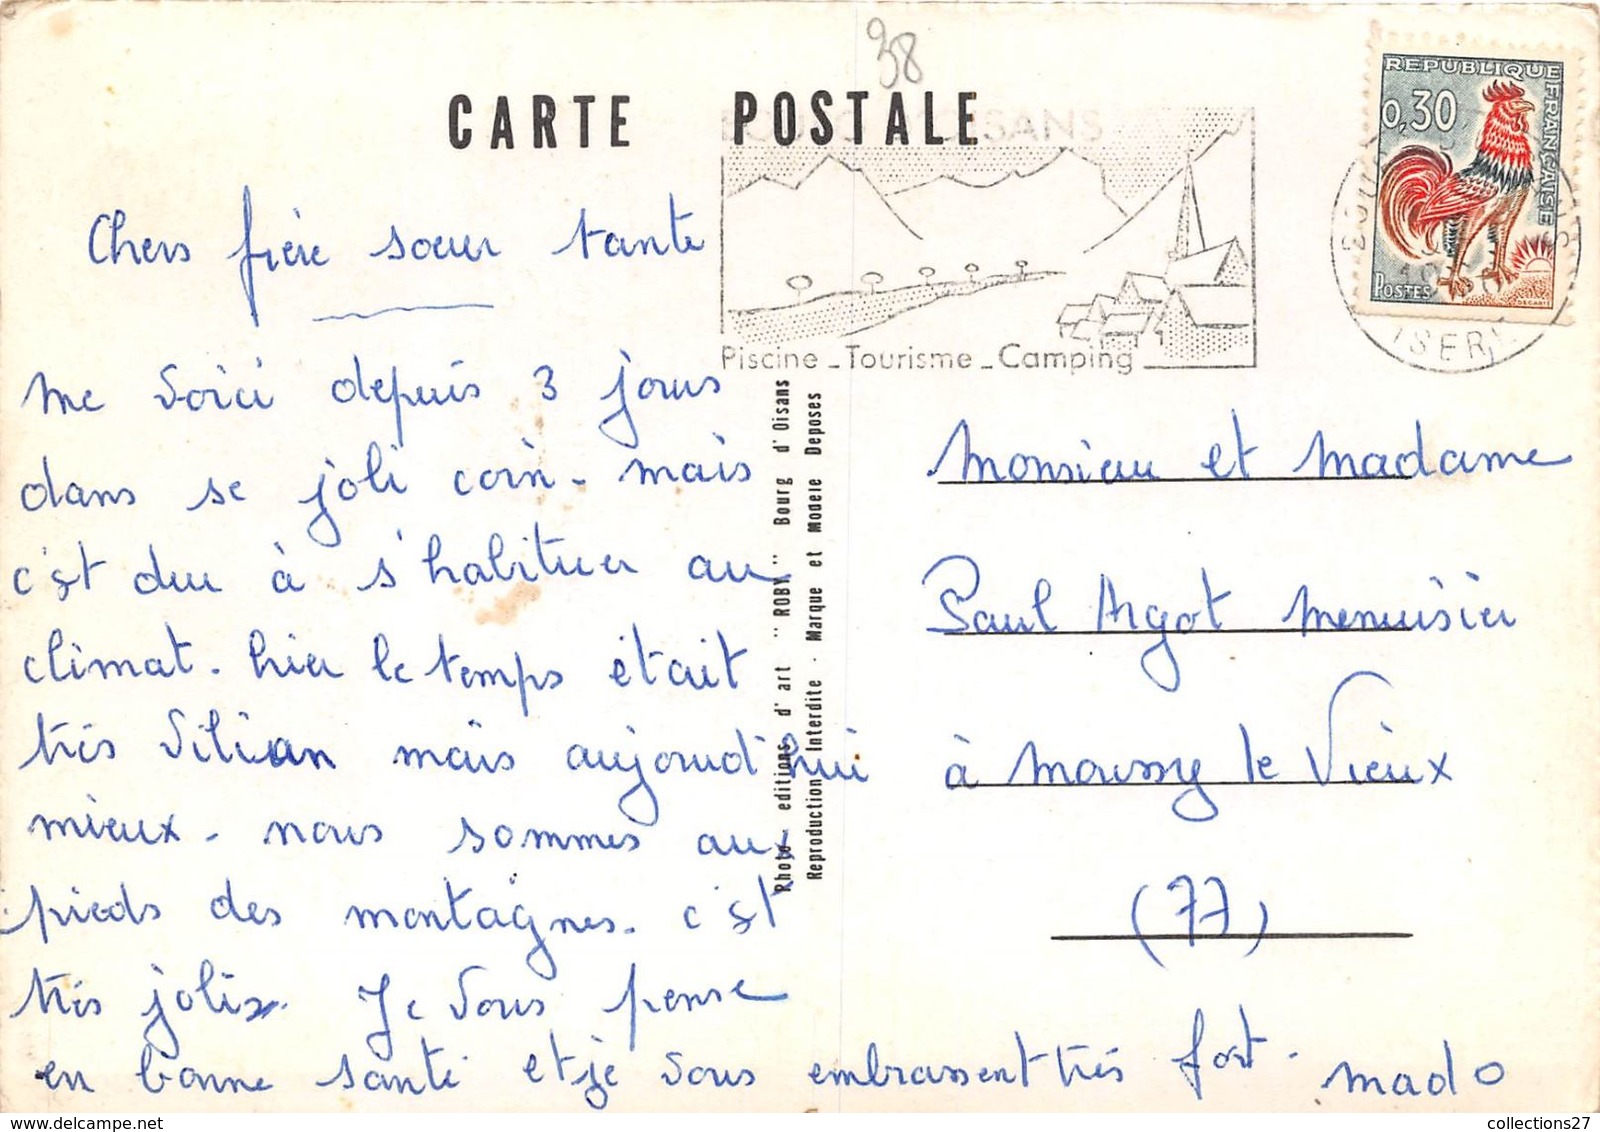 38
CARTE POSTALE
OISANS
Piscine - Tourisme - Camping
REPUBLIQUE FRANÇAISE
0,30
POSTES
DECARIS
ISERE
Chers frère soeur tante
me voici depuis 3 jours
dans se joli coin - mais
c'est dur à s'habituer au
climat - hier le temps était
très vilian mais aujourd'hui
mieux - nous sommes aux
pieds des montagnes. c'est
très joli. Je vous pense
en bonne santé et je vous embrassent très fort - mado
Photo - editions d'art " ROBY " Bourg d'Oisans
Reproduction Interdite - Marque et Modele Deposes
Monsieur et Madame
Paul Argot menuisier
à Moussy le Vieux
(77)
collections27